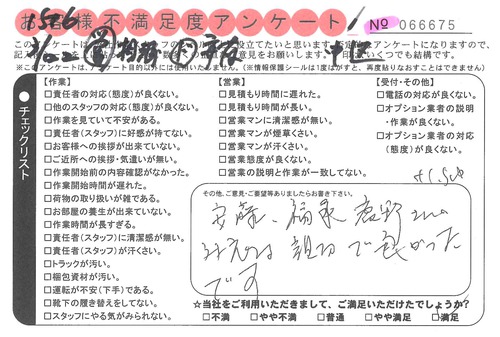 お客様不満足度アンケート
No 066675
※このアンケートは、アンケート目的以外には使用いたしません。(※情報保護シールは1度はがすと、再度貼りなおすことはできません)
チェックリスト
【作業】
□責任者の対応(態度)が良くない。
□他のスタッフの対応(態度)が良くない。
□作業を見ていて不安がある。
□責任者(スタッフ)に好感が持てない。
□お客様への挨拶が出来ていない。
□ご近所への挨拶・気遣いが無い。
□作業開始前の内容確認がなかった。
□作業開始時間が遅れた。
□荷物の取り扱いが雑である。
□お部屋の養生が出来ていない。
□作業時間が長すぎる。
□責任者(スタッフ)に清潔感が無い。
□責任者(スタッフ)が汗くさい。
□トラックが汚い。
□梱包資材が汚い。
□運転が不安(下手)である。
□靴下の履き替えをしてない。
□スタッフにやる気がみられない。
【営業】
□見積もり時間に遅れた。
□見積もり時間が長い。
□営業マンに清潔感が無い。
□営業マンが煙草くさい。
□営業マンが汗くさい。
□営業態度が良くない。
□営業の説明と作業が一致してない。
【受付・その他】
□電話の対応が良くない。
□オプション業者の説明
・作業が良くない。
□オプション業者の対応
(態度)が良くない。
その他、ご意見・ご要望等ありましたらお書き下さい。
親切で良かった
です
☆当社をご利用いただきまして、ご満足いただけたでしょうか?
□不満 □やや不満 □普通 □やや満足 □満足